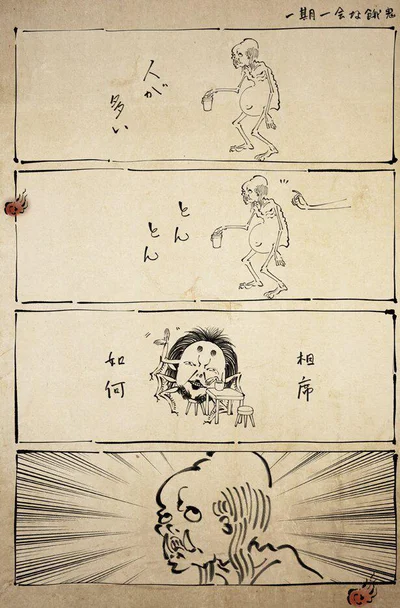 一期一会な餓鬼
人が
多い
とん
とん
相席
如何